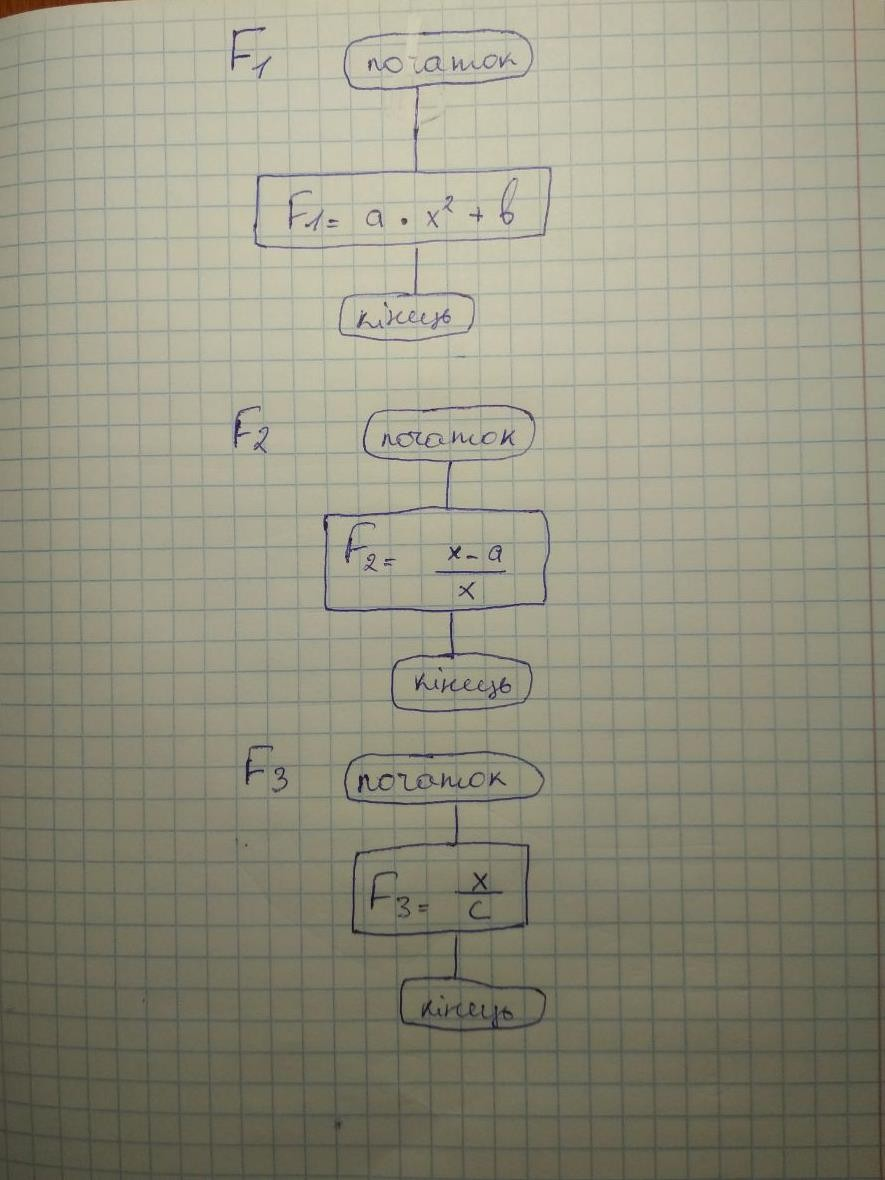 F1 початок
F1= a · x² + b
кінець
F2 початок
F2= x - a
x
кінець
F3 початок
F3= x
c
кінець